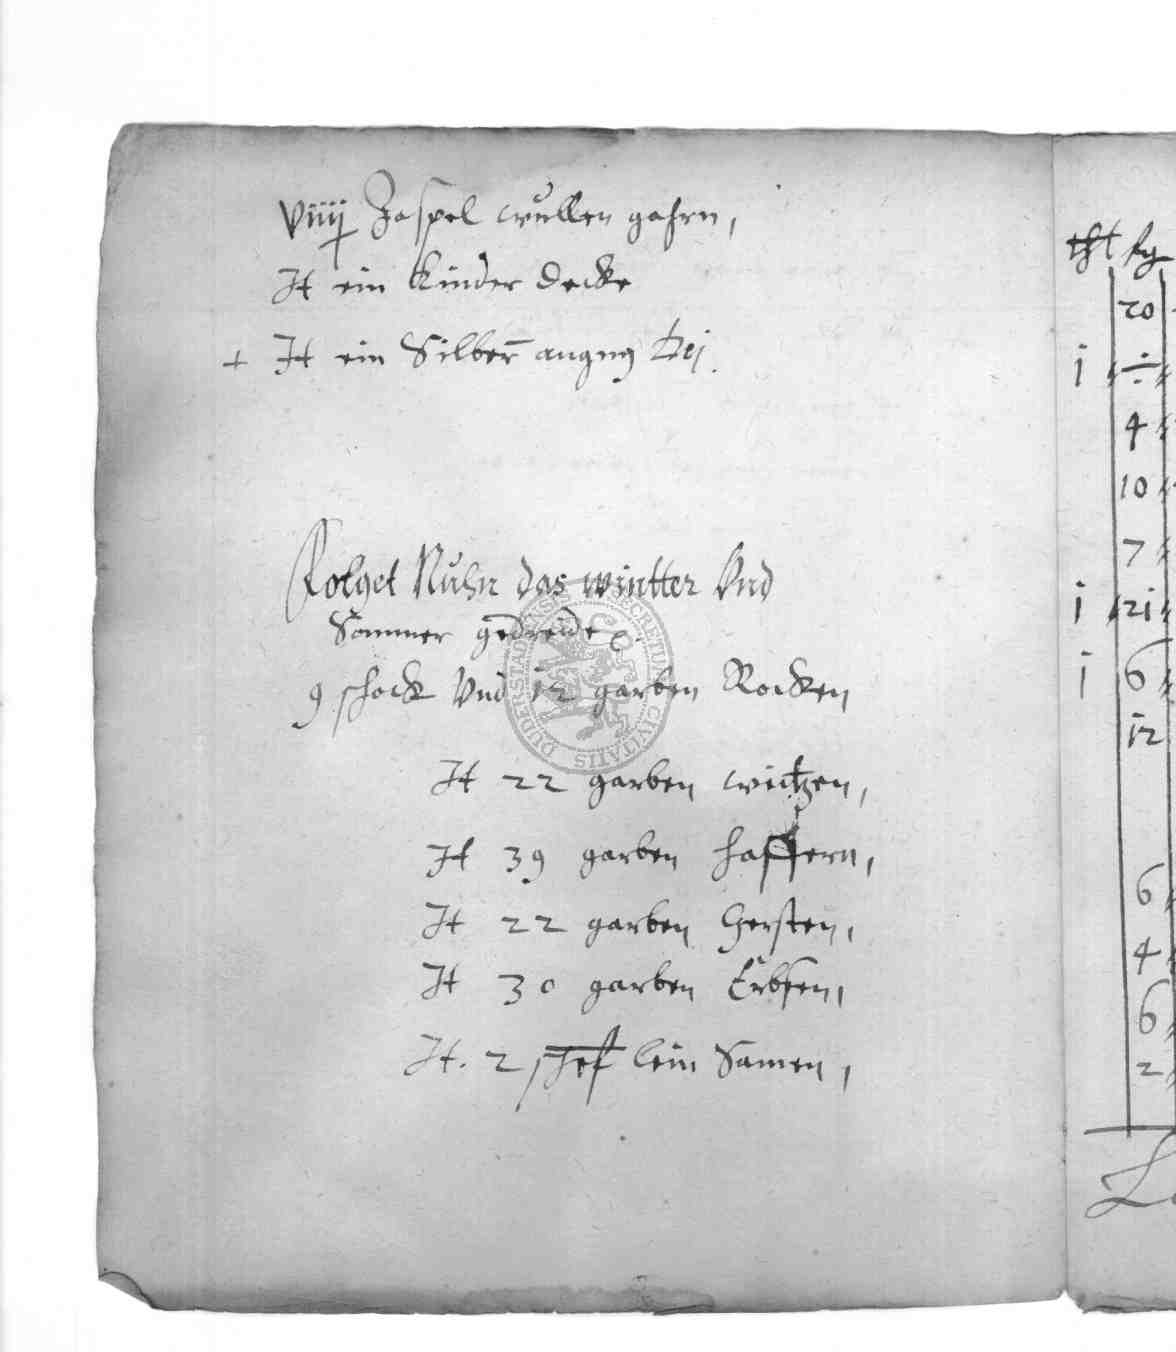 Viiij Zaspel wullen gahrn,
It ein Kinder decke
+ It ein Silbern
Folget Nuhn das wintter Vnd
Sommer gedreide
9 schock Vnd 12 garben Rocken
It 22 garben weitzen,
It 39 garben haffern,
It 22 garben Gersten,
It 30 garben Erbsen,
It. 2 schef lein Samen,
SECRETUM CIVITATIS DUDERSTADENSIS
20
i
4
10
7
i 21
i 6
12
6
4
6
2